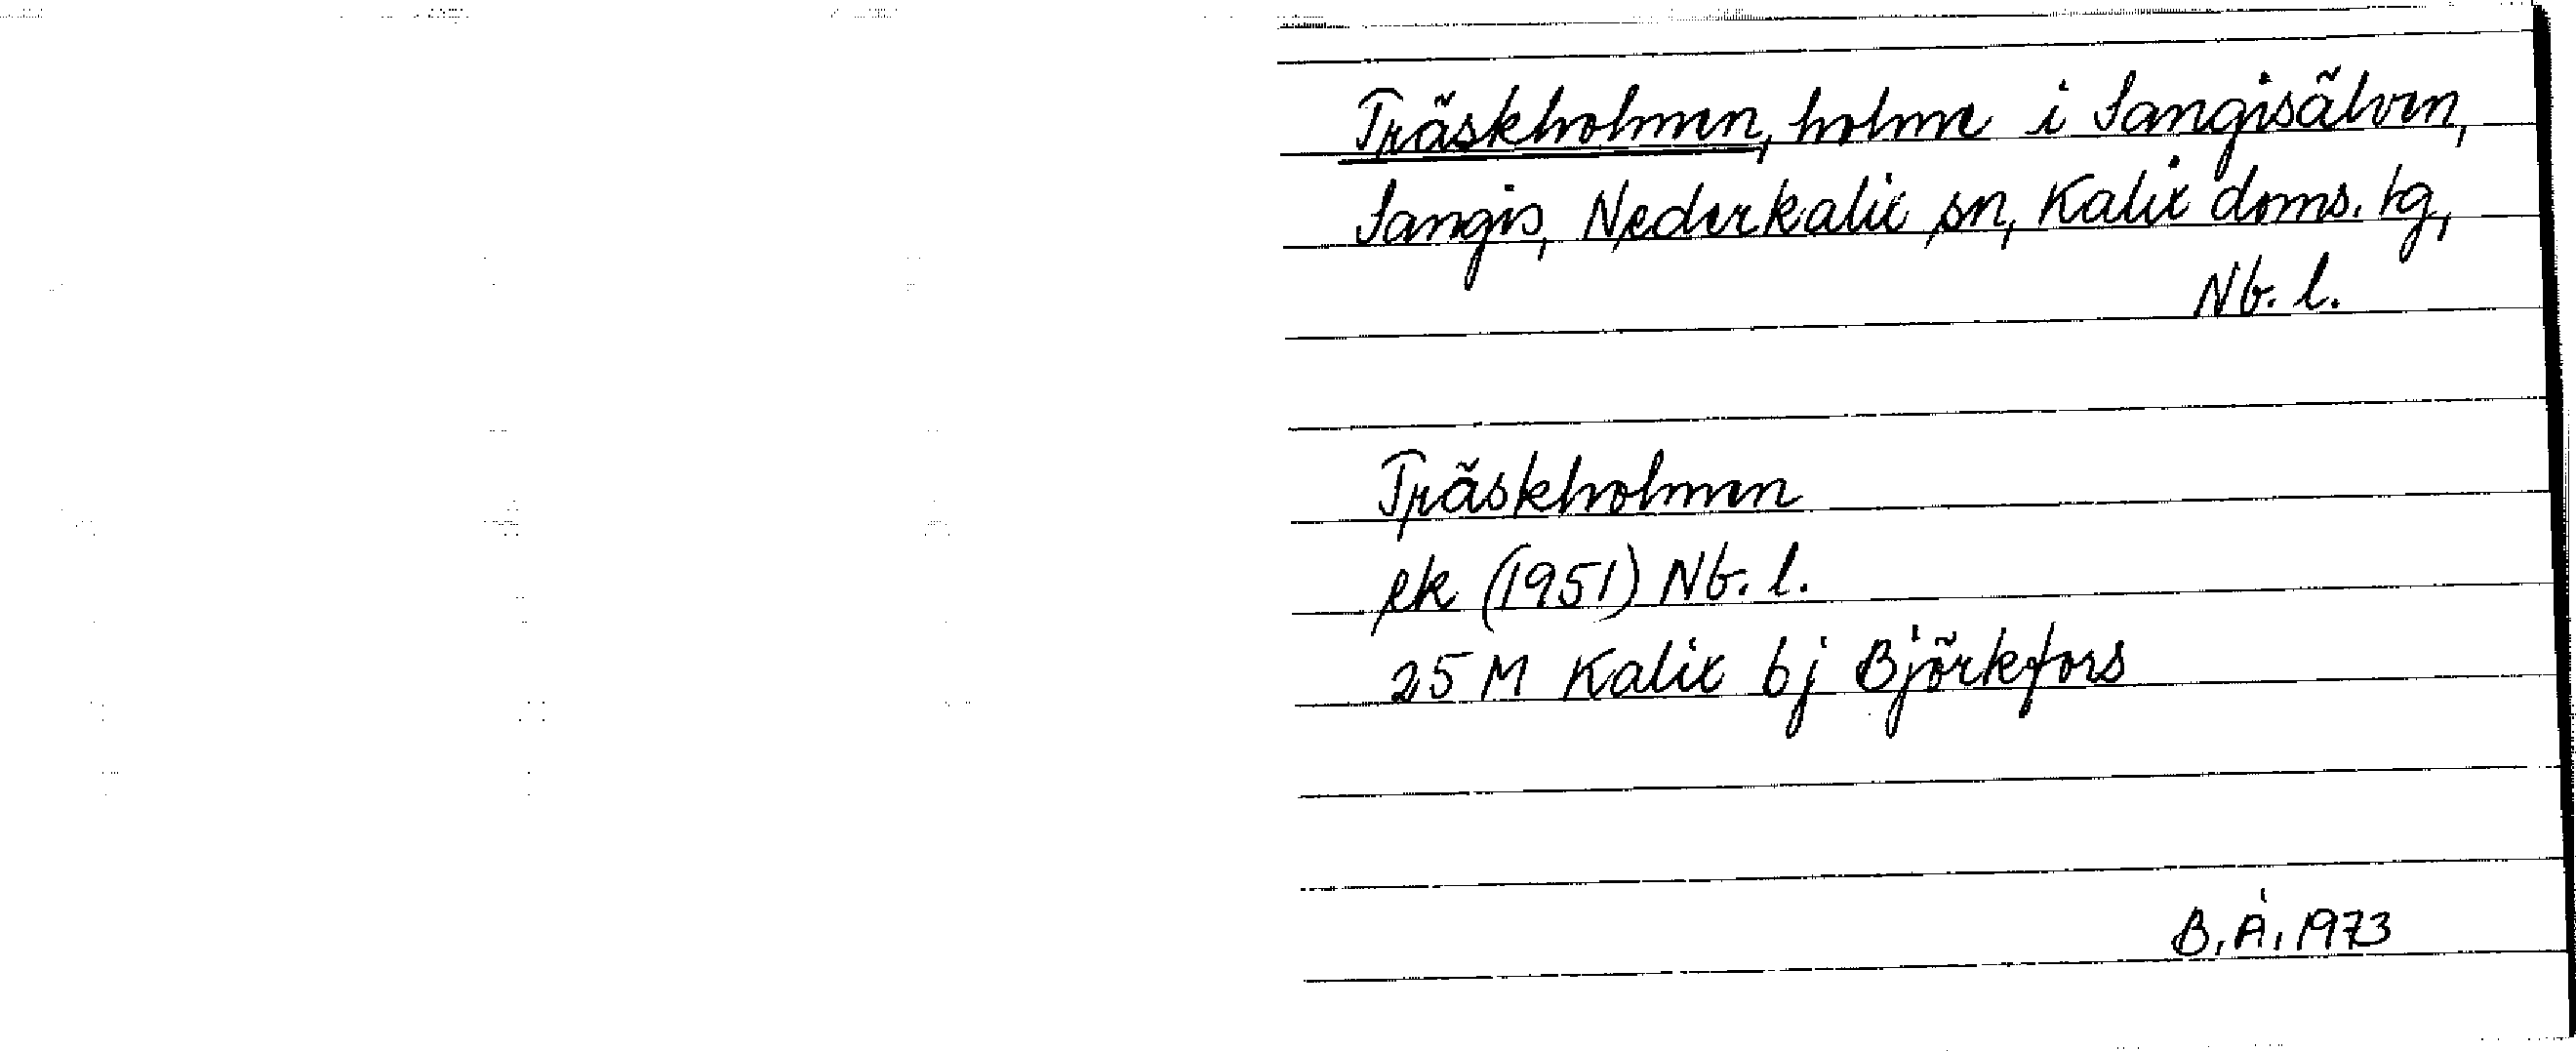 Träskholmen, holme i Sangisälven,
Sangis, Nederkalix sn, Kalix doms. tg,
Nb. l.
Träskholmen
ek (1951) Nb. l.
25 M Kalix 6j Björkfors
B. Å. 1973